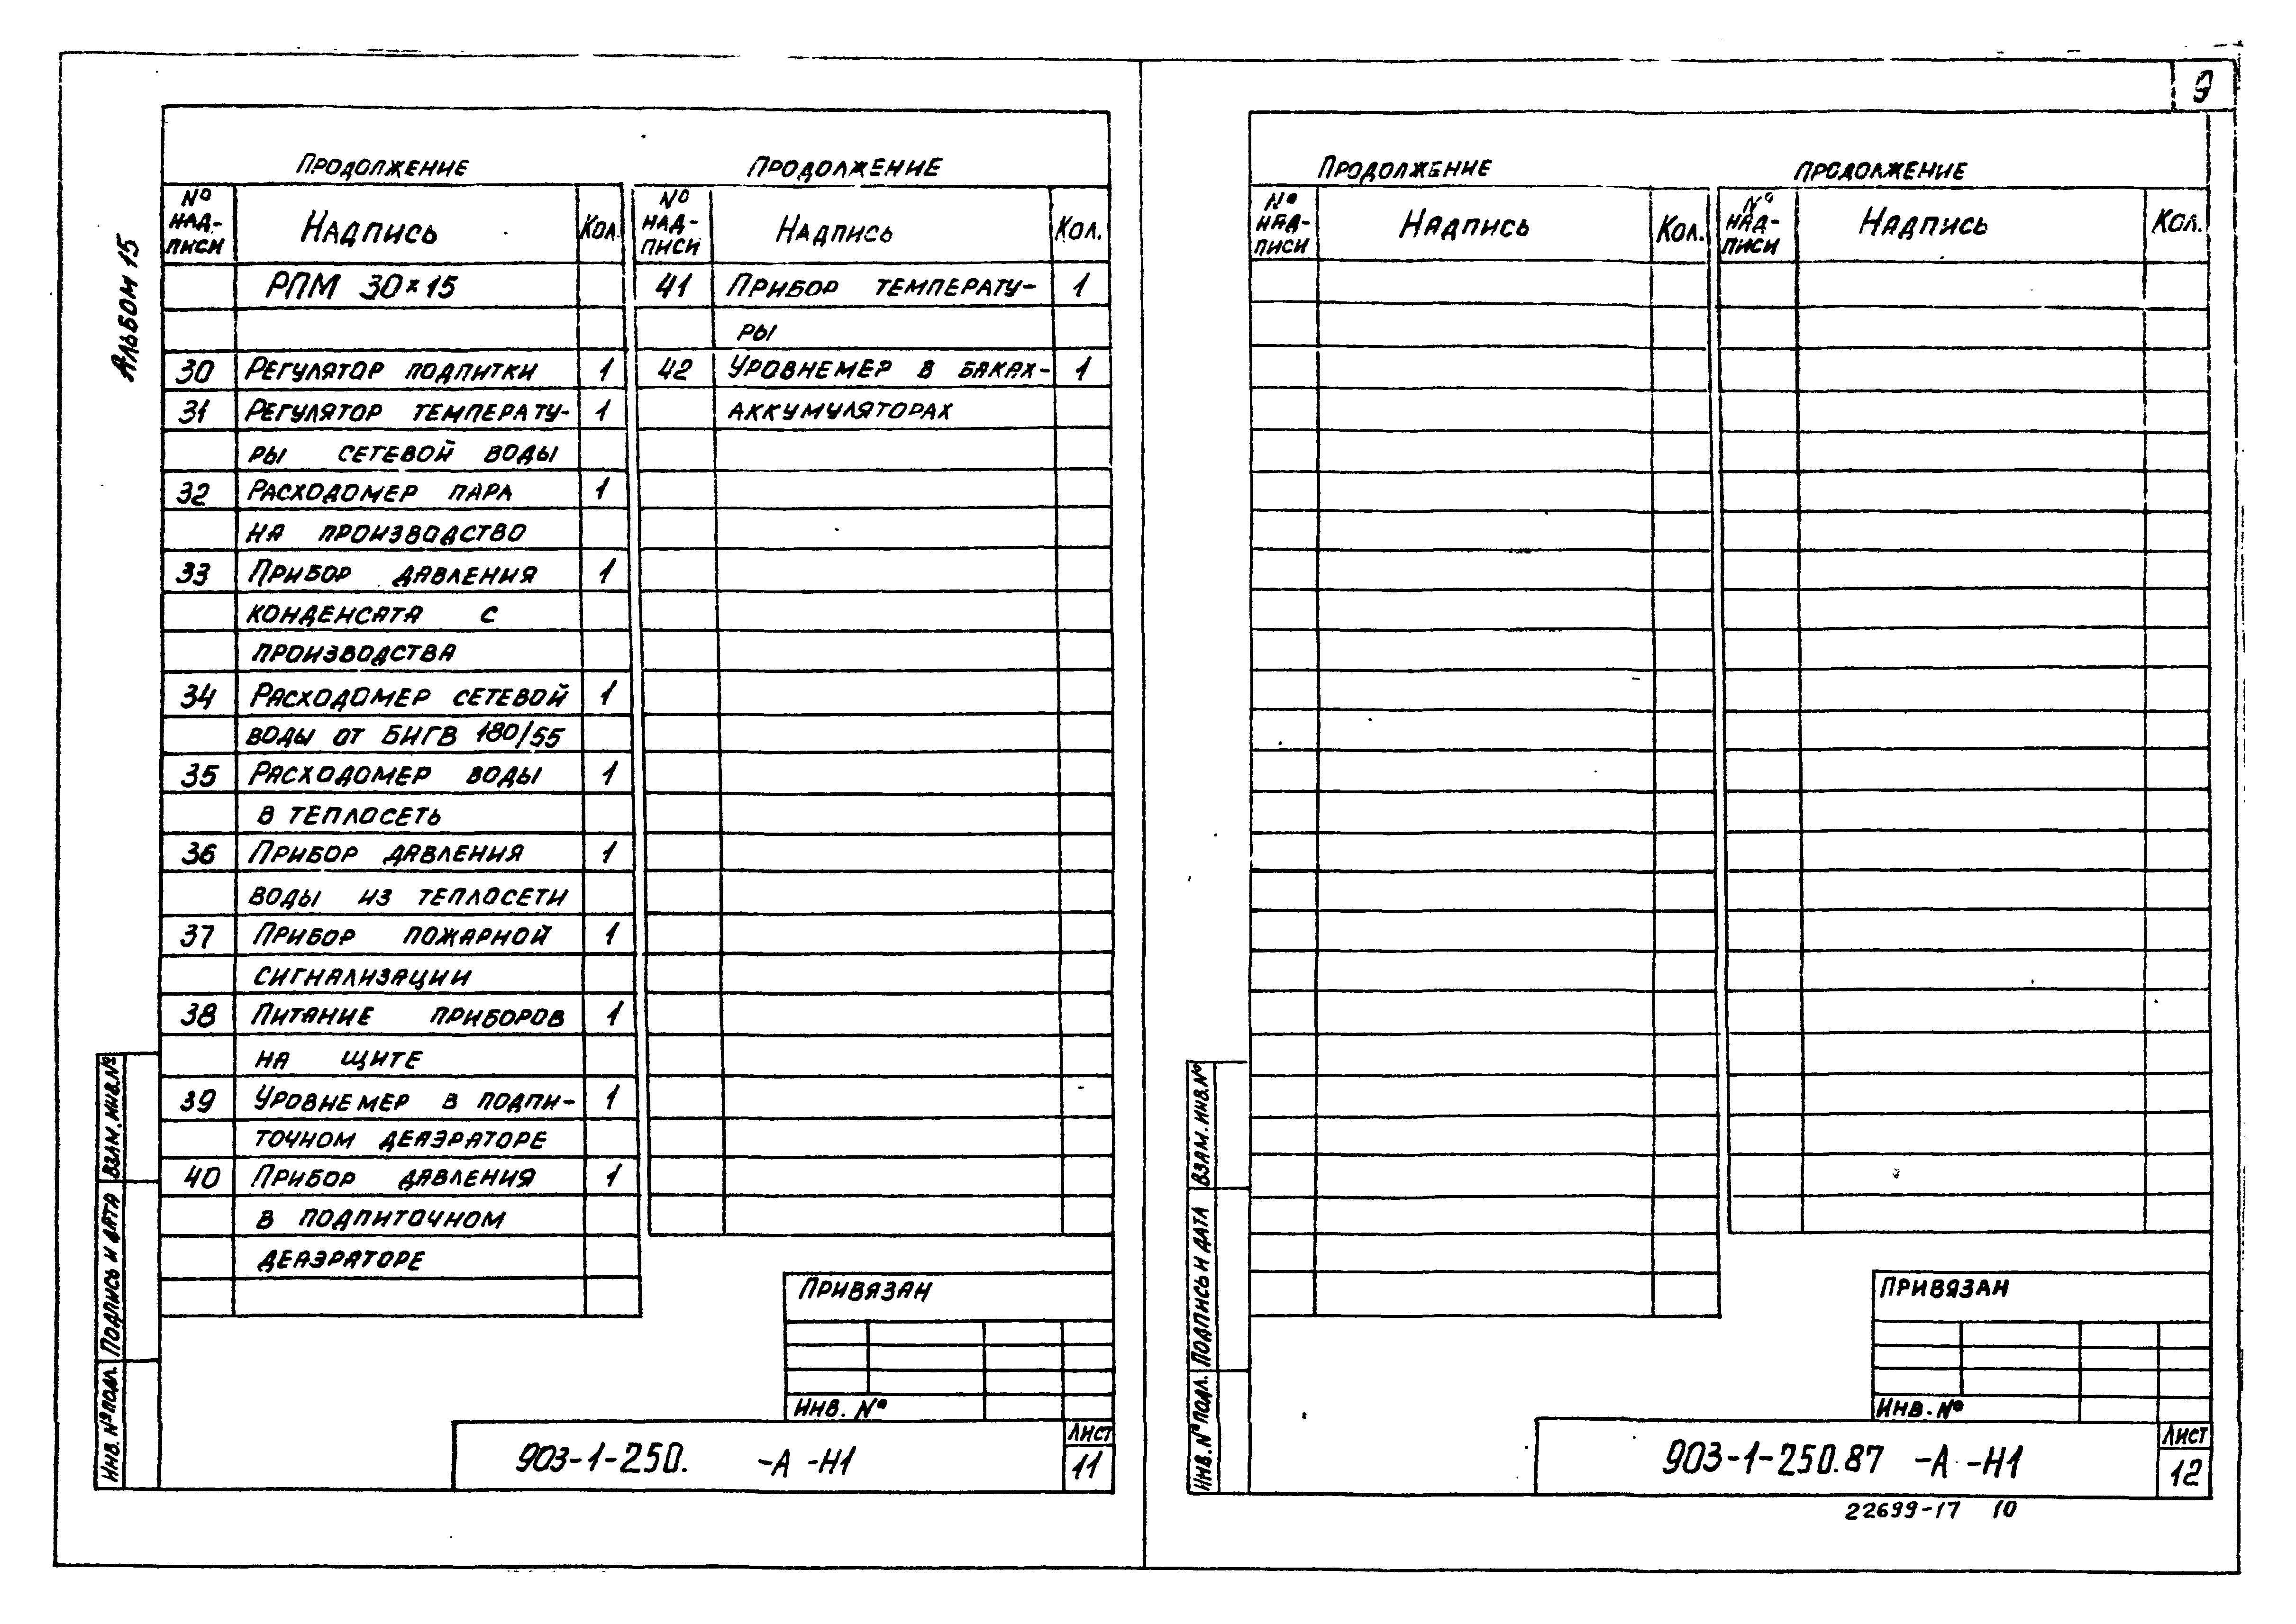 9
Альбом 15
Продолжение
№ над-писи Надпись Кол.
РПМ 30×15
30 Регулятор подпитки 1
31 Регулятор температу- 1
ры сетевой воды
32 Расходомер пара 1
на производство
33 Прибор давления 1
конденсата с
производства
34 Расходомер сетевой 1
воды от БИГВ 180/55
35 Расходомер воды 1
в теплосеть
36 Прибор давления 1
воды из теплосети
37 Прибор пожарной 1
сигнализации
38 Питание приборов 1
на щите
39 Уровнемер в подпи- 1
точном деаэраторе
40 Прибор давления 1
в подпиточном
деаэраторе
Продолжение
№ над-писи Надпись Кол.
41 Прибор температу- 1
ры
42 Уровнемер в баках- 1
аккумуляторах
Привязан
Инв. №
903-1-250. -А -Н1
Лист
11
Взам. инв. №
Подпись и дата
Инв. № подл.
Продолжение
№ над-писи Надпись Кол.
Продолжение
№ над-писи Надпись Кол.
Привязан
Инв. №
903-1-250.87 -А -Н1
Лист
12
Взам. инв. №
Подпись и дата
Инв. № подл.
22699-17 10